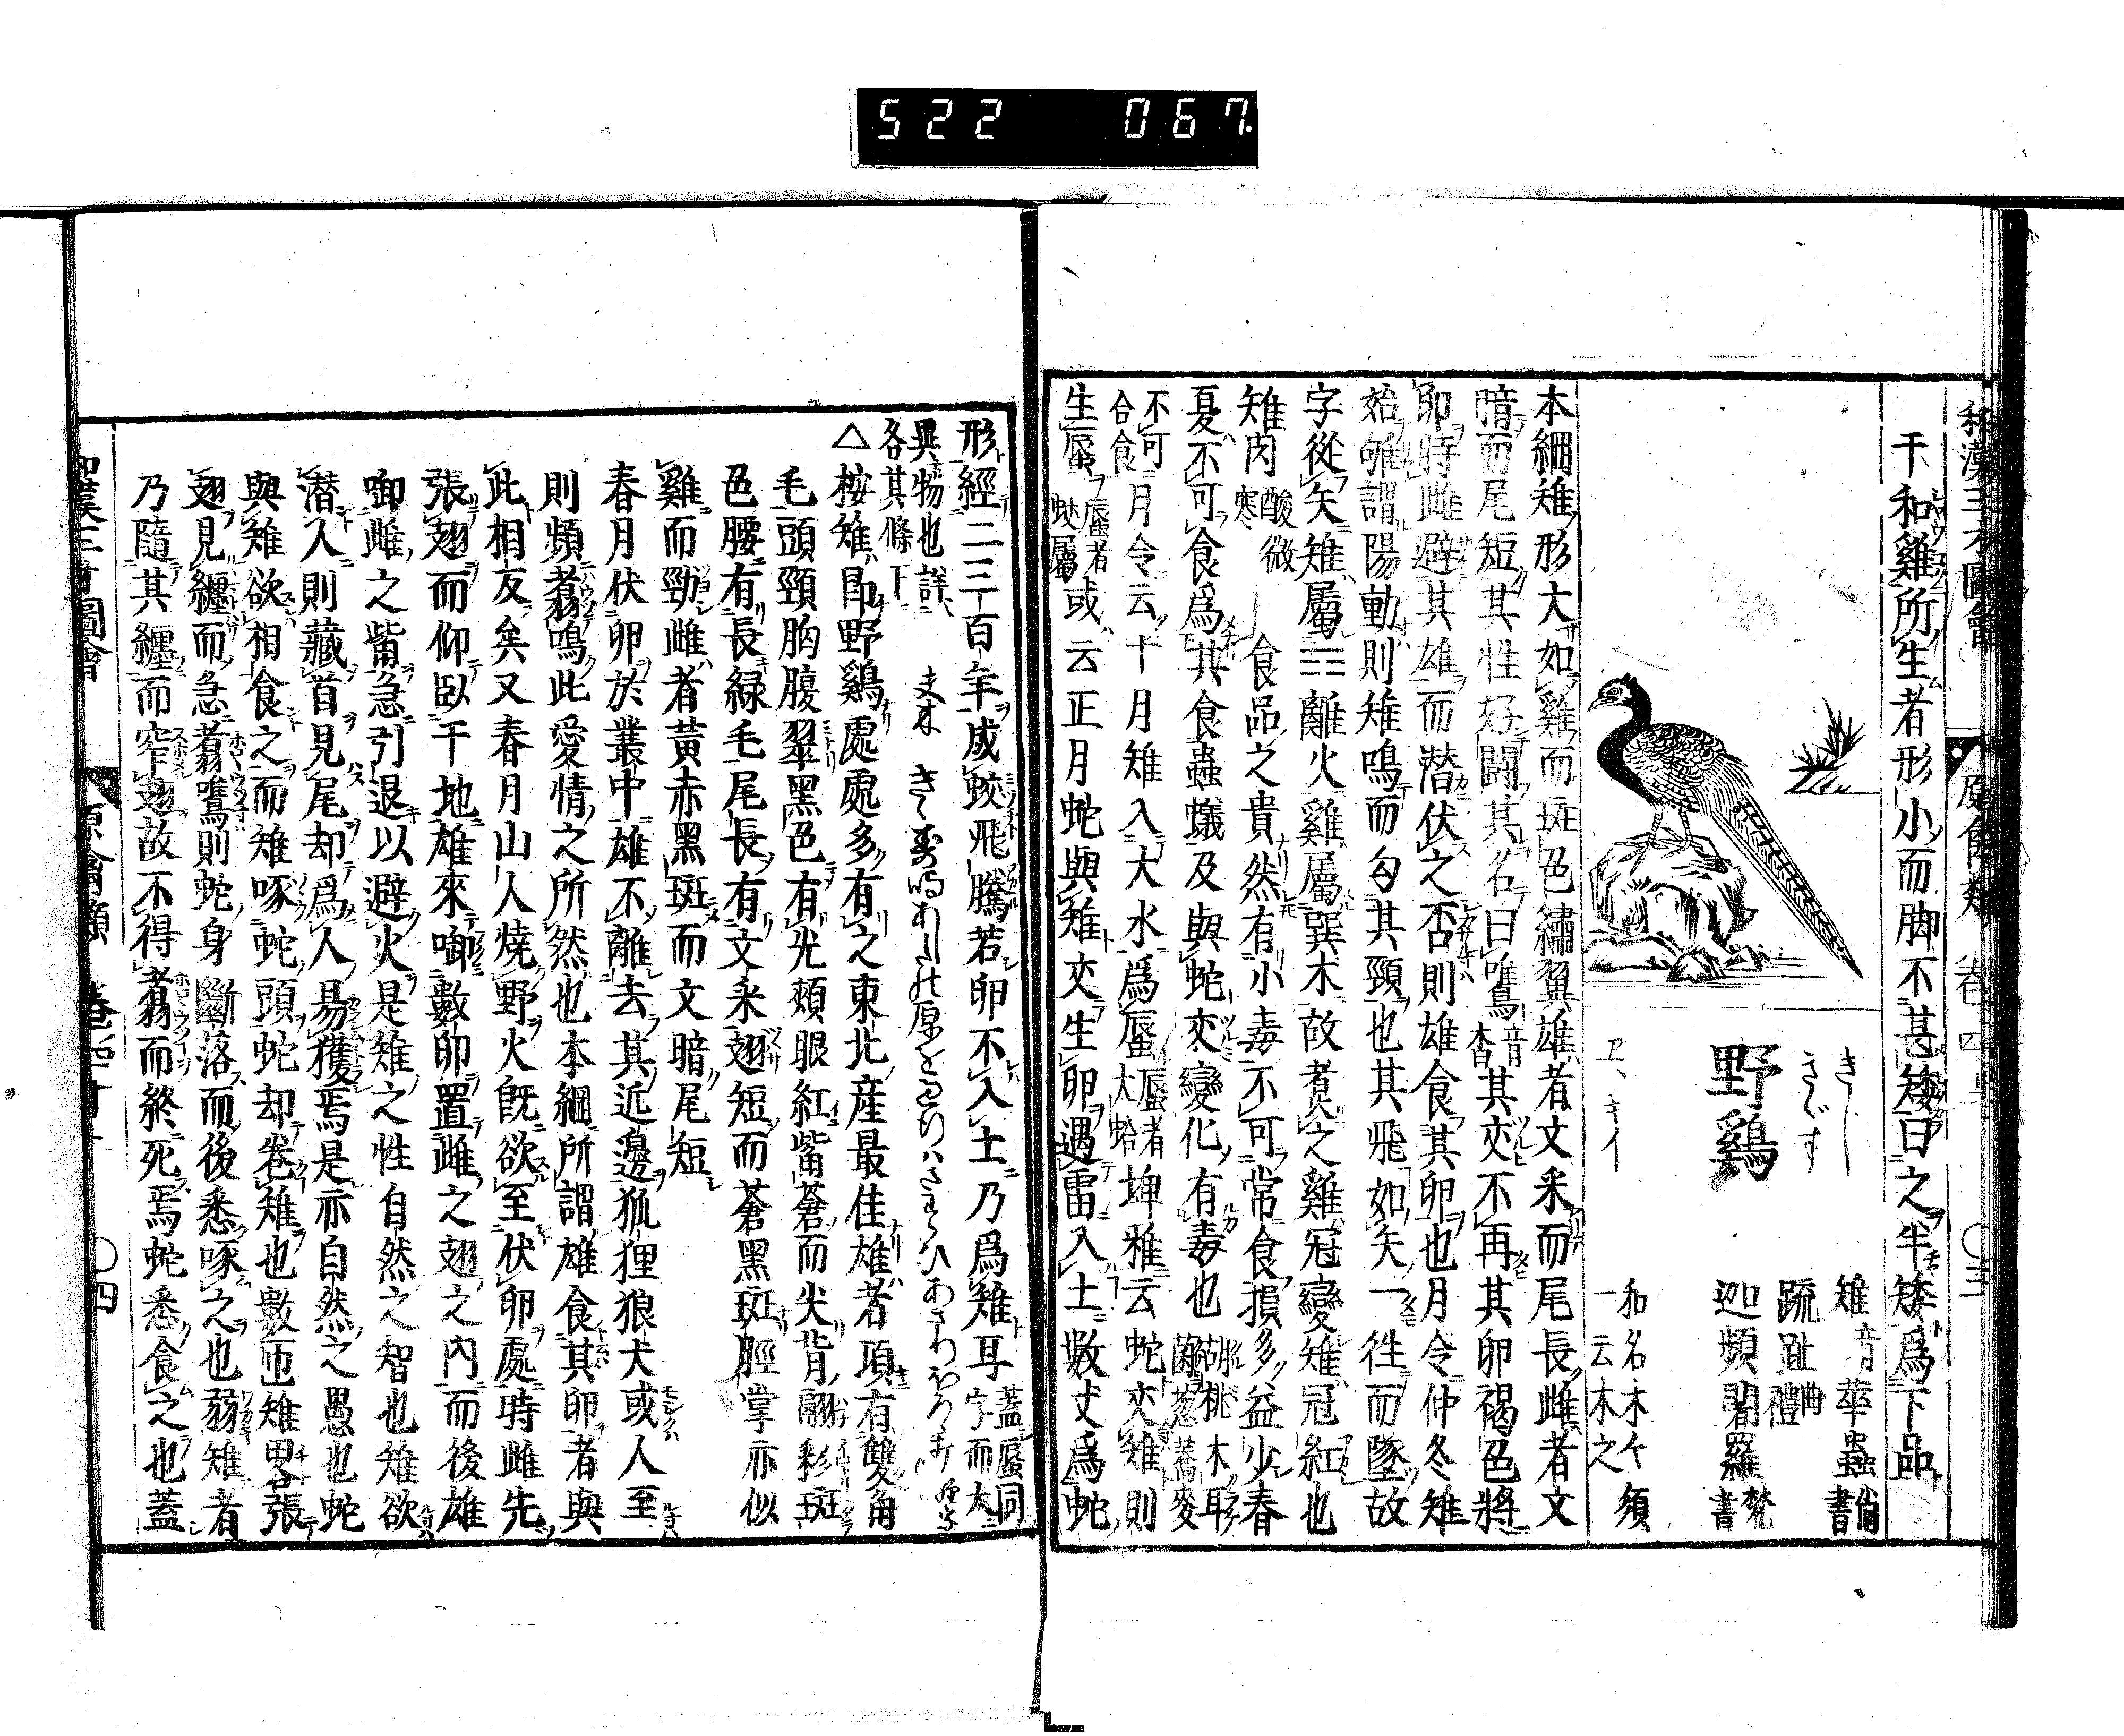 522 067.
和漢三才圖會 原禽類 卷四十二 〇三
于和雞所生者形小而脚不甚矮曰之半矮爲下品
きじ
きゞす
野鷄
雉 音 華蟲 尚書
疏趾 曲禮
迦頻闍羅 梵書
和名木々須
一云木之
本綱雉形大如雞而斑色繡翼雄者文采而尾長雌者文
暗而尾短其性好鬪其名曰鷕 音杳 其交不再其卵褐色將
卵時雌避其雄而潜伏之否則雄食其卵也月令仲冬雉
始雊謂陽動則雉鳴而勾其頸也其飛如矢一徃而墜故
字從矢雉屬☲離火雞屬巽木故煮之雞冠變雉冠紅也
雉肉 酸微寒 食品之貴然有小毒不可常食損多益少春
夏不可食爲其食蟲蟻及與蛇交變化有毒也 胡桃木耳菌葱蕎麥
不可合食 月令云十月雉入大水爲蜃 蜃者大蛤 埤雅云蛇交雉則
生蜃 蜃者蛟屬 或云正月蛇與雉交生卵遇雷入土數丈爲蛇
形經二三百年成蛟飛騰若卵不入土乃爲雉耳 蓋蜃同字而大
異物也詳各其條下
△按雉卽野鷄處處多有之東北産最佳雄者項有雙角
毛頭頸胸腹翠黑色有光頰眼紅觜蒼而尖背翮彩斑
色腰有長緑毛尾長有文采翅短而蒼黑斑脛掌亦似
雞而勁雌者黃赤黑斑而文暗尾短
春月伏卵於叢中雄不離去其近邊狐狸狼犬或人至
則頻翥鳴此愛情之所然也本綱所謂雄食其卵者與
此相反矣又春月山人燒野火旣欲至伏卵處時雌先
張翅而仰臥于地雄來啣數卵置雌之翅之內而後雄
啣雌之觜急引退以避火是雉之性自然之智也雉欲
潜人則藏首見尾却爲人易獲焉是亦自然之愚也蛇
與雉欲相食之而雉啄蛇頭蛇却卷雉也數匝雉畧張
翅見纒而急翥鷕則蛇身斷落而後悉啄之也弱雉者
乃隨其纒而窄翅故不得翥而終死焉蛇悉食之也蓋
和漢三才圖會 原禽類 卷四十二 〇四